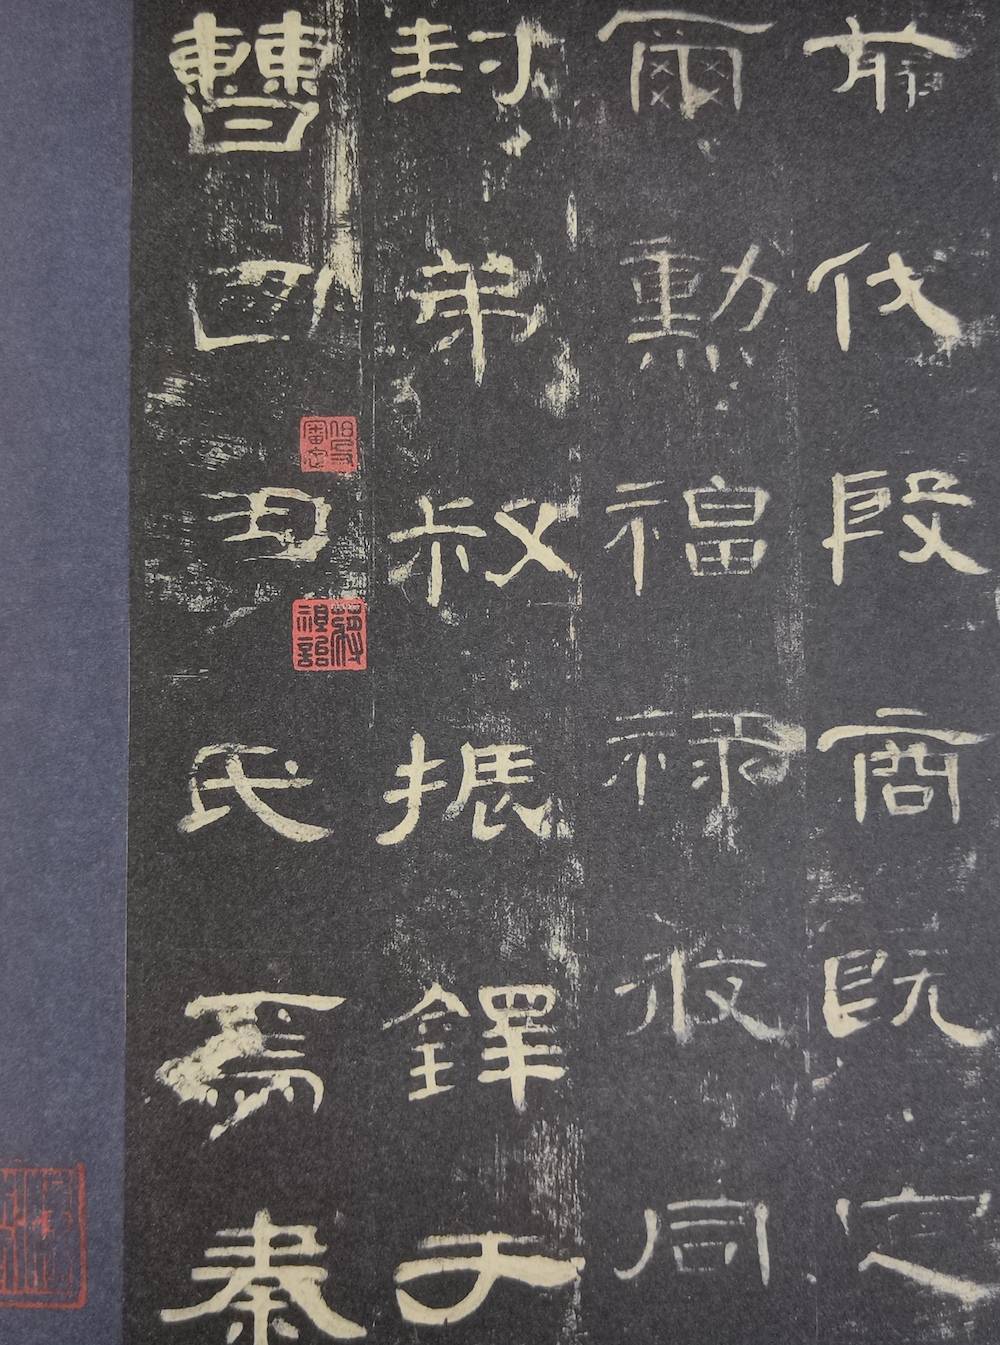 翦伐殷商既定
爾勳福祿攸同
封弟叔振鐸于
曹國因氏焉秦
蔣祖詒